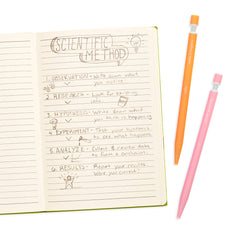 SCIENTIFIC
METHOD
1. OBSERVATION - Write down what
you notice
2. RESEARCH - Look for existing
info
3. HYPOTHESIS - Write down what
you think is happening
4. EXPERIMENT - Test your hypothesis
to see what happens
5. ANALYZE - Collect & record data
to form a conclusion
6. RESULTS - Report your results
Were you correct?